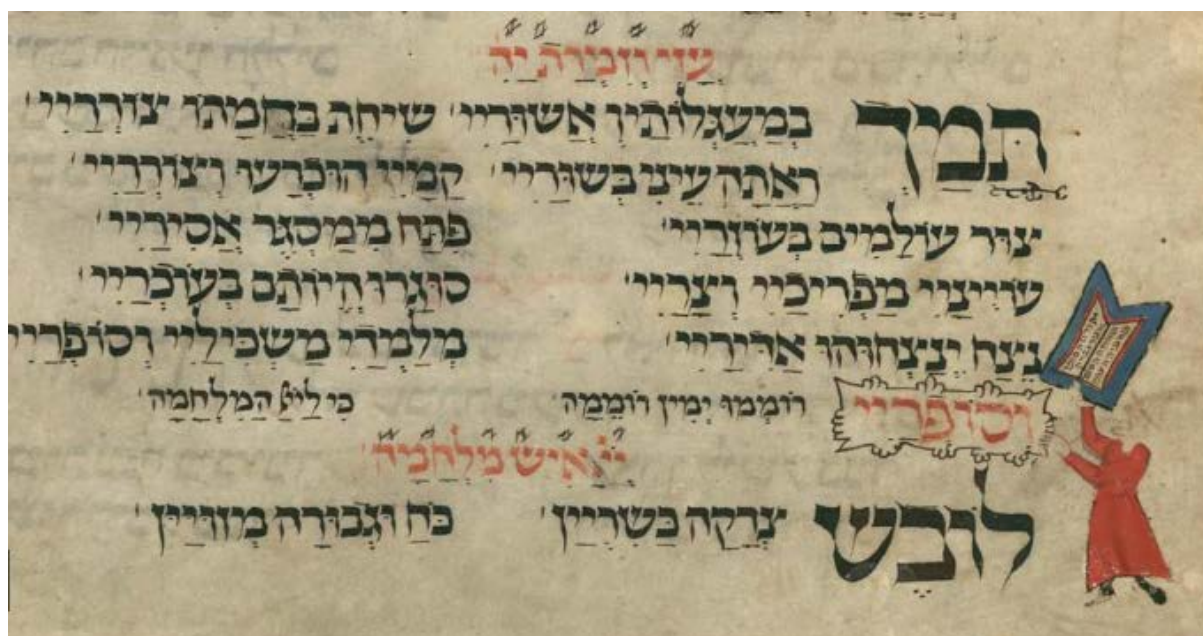 עזי וזמרת יה
תמך במעגלותיך אשוריי׳ שיחת בחמתו צורריי׳
ראתה עיני בשוריי׳ קמיי הוכרעו וצורריי׳
צור עולמים בעוזריי׳ פתח ממסגר אסיריי׳
מפריכיי וצריי׳ סוגרו היותם בעוכריי׳
נצח ינצחוהו אדיריי׳ מלמדי משכיליי וסופריי
וסופריי רוממו ימין רוממה׳ כי המלחמה׳
איש מלחמה
לובש צדקה כשריין׳ כח וגבורה מזויין׳